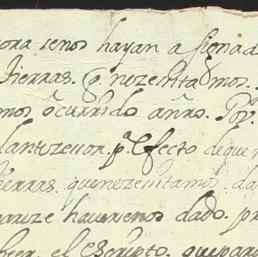 ora senos hayan asignad
tierras. q̃ nezesitamos.
mos ocurrido año. Por
lantezeσor. pª Efecto de que
tierras. quenezesitamos. da
haurenos dado. pr
el Escripto. quepar